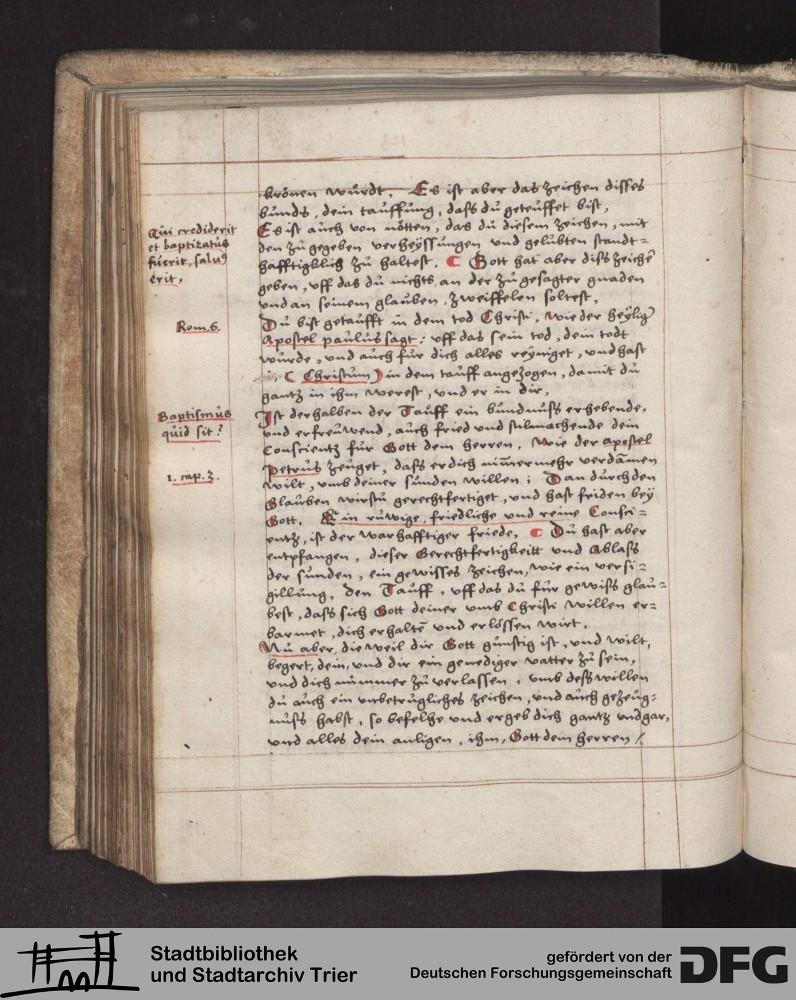 krönen würdt. Es ist aber das zeichen disses
bunds, dein tauffung, dass du geteuffet bist,
Es ist auch von nötten, das du diesem zeichen, mit
den zu gegeben verheyssungen und gelübten standt=
hafftigklich zu haltest. Gott hat aber diss zeichē
geben, uff das du nichts an der zugesagter gnaden
und an seinem glauben, zweiffelen soltest,
Du bist getaufft in dem tod Christi, wie der heylig
Apostel paulus sagt: uff das sein tod, dein todt
wurde, und auch für dich alles reyniget, und hast
( Christum ) in dem tauff angezogen, damit du
gantz in ihm werest, und er in dir,
Ist derhalben der Tauff ein bundnuss erhebende,
und erfreuwend, auch fried und stilmachende dein
Conscientz für Gott dem herren. Wie der apostel
Petrus zeuget, dass er dich nim̄ermehr verdam̄en
wilt, umb deiner sunden willen; Dan durch den
Glauben wirstu gerechtfertiget, und hast friden bey
Gott. Ein rüwige, friedliche und reine Consci=
entz, ist der warhafftiger friede. Du hast aber
entpfangen, dieser Gerechtfertigkeitt und Ablass
der sunden, ein gewisses zeichen, wie ein versi=
gillung, den Tauff, uff das du für gewiss glau=
best, dass sich Gott deiner umb Christi willen er=
barmet, dich erhaltē und erlössen wirt.
Nu aber, die weil dir Gott günstig ist, und wilt,
begert, dein, und dir ein genediger vatter zu sein,
und dich nümmer zu verlassen, umb dess willen
du auch ein unbetrugliches zeichen, und auch gezeug=
nuss habst, so befelhe und ergeb dich gantz und gar,
und alles dein anligen, ihm, Gott dem herren /
Qui crediderit
et baptizatus
fuerit, salus
erit,
Rom. 6.
Baptismus
quid sit?
1. cap. 3.
Stadtbibliothek
und Stadtarchiv Trier
gefördert von der
Deutschen Forschungsgemeinschaft
DFG